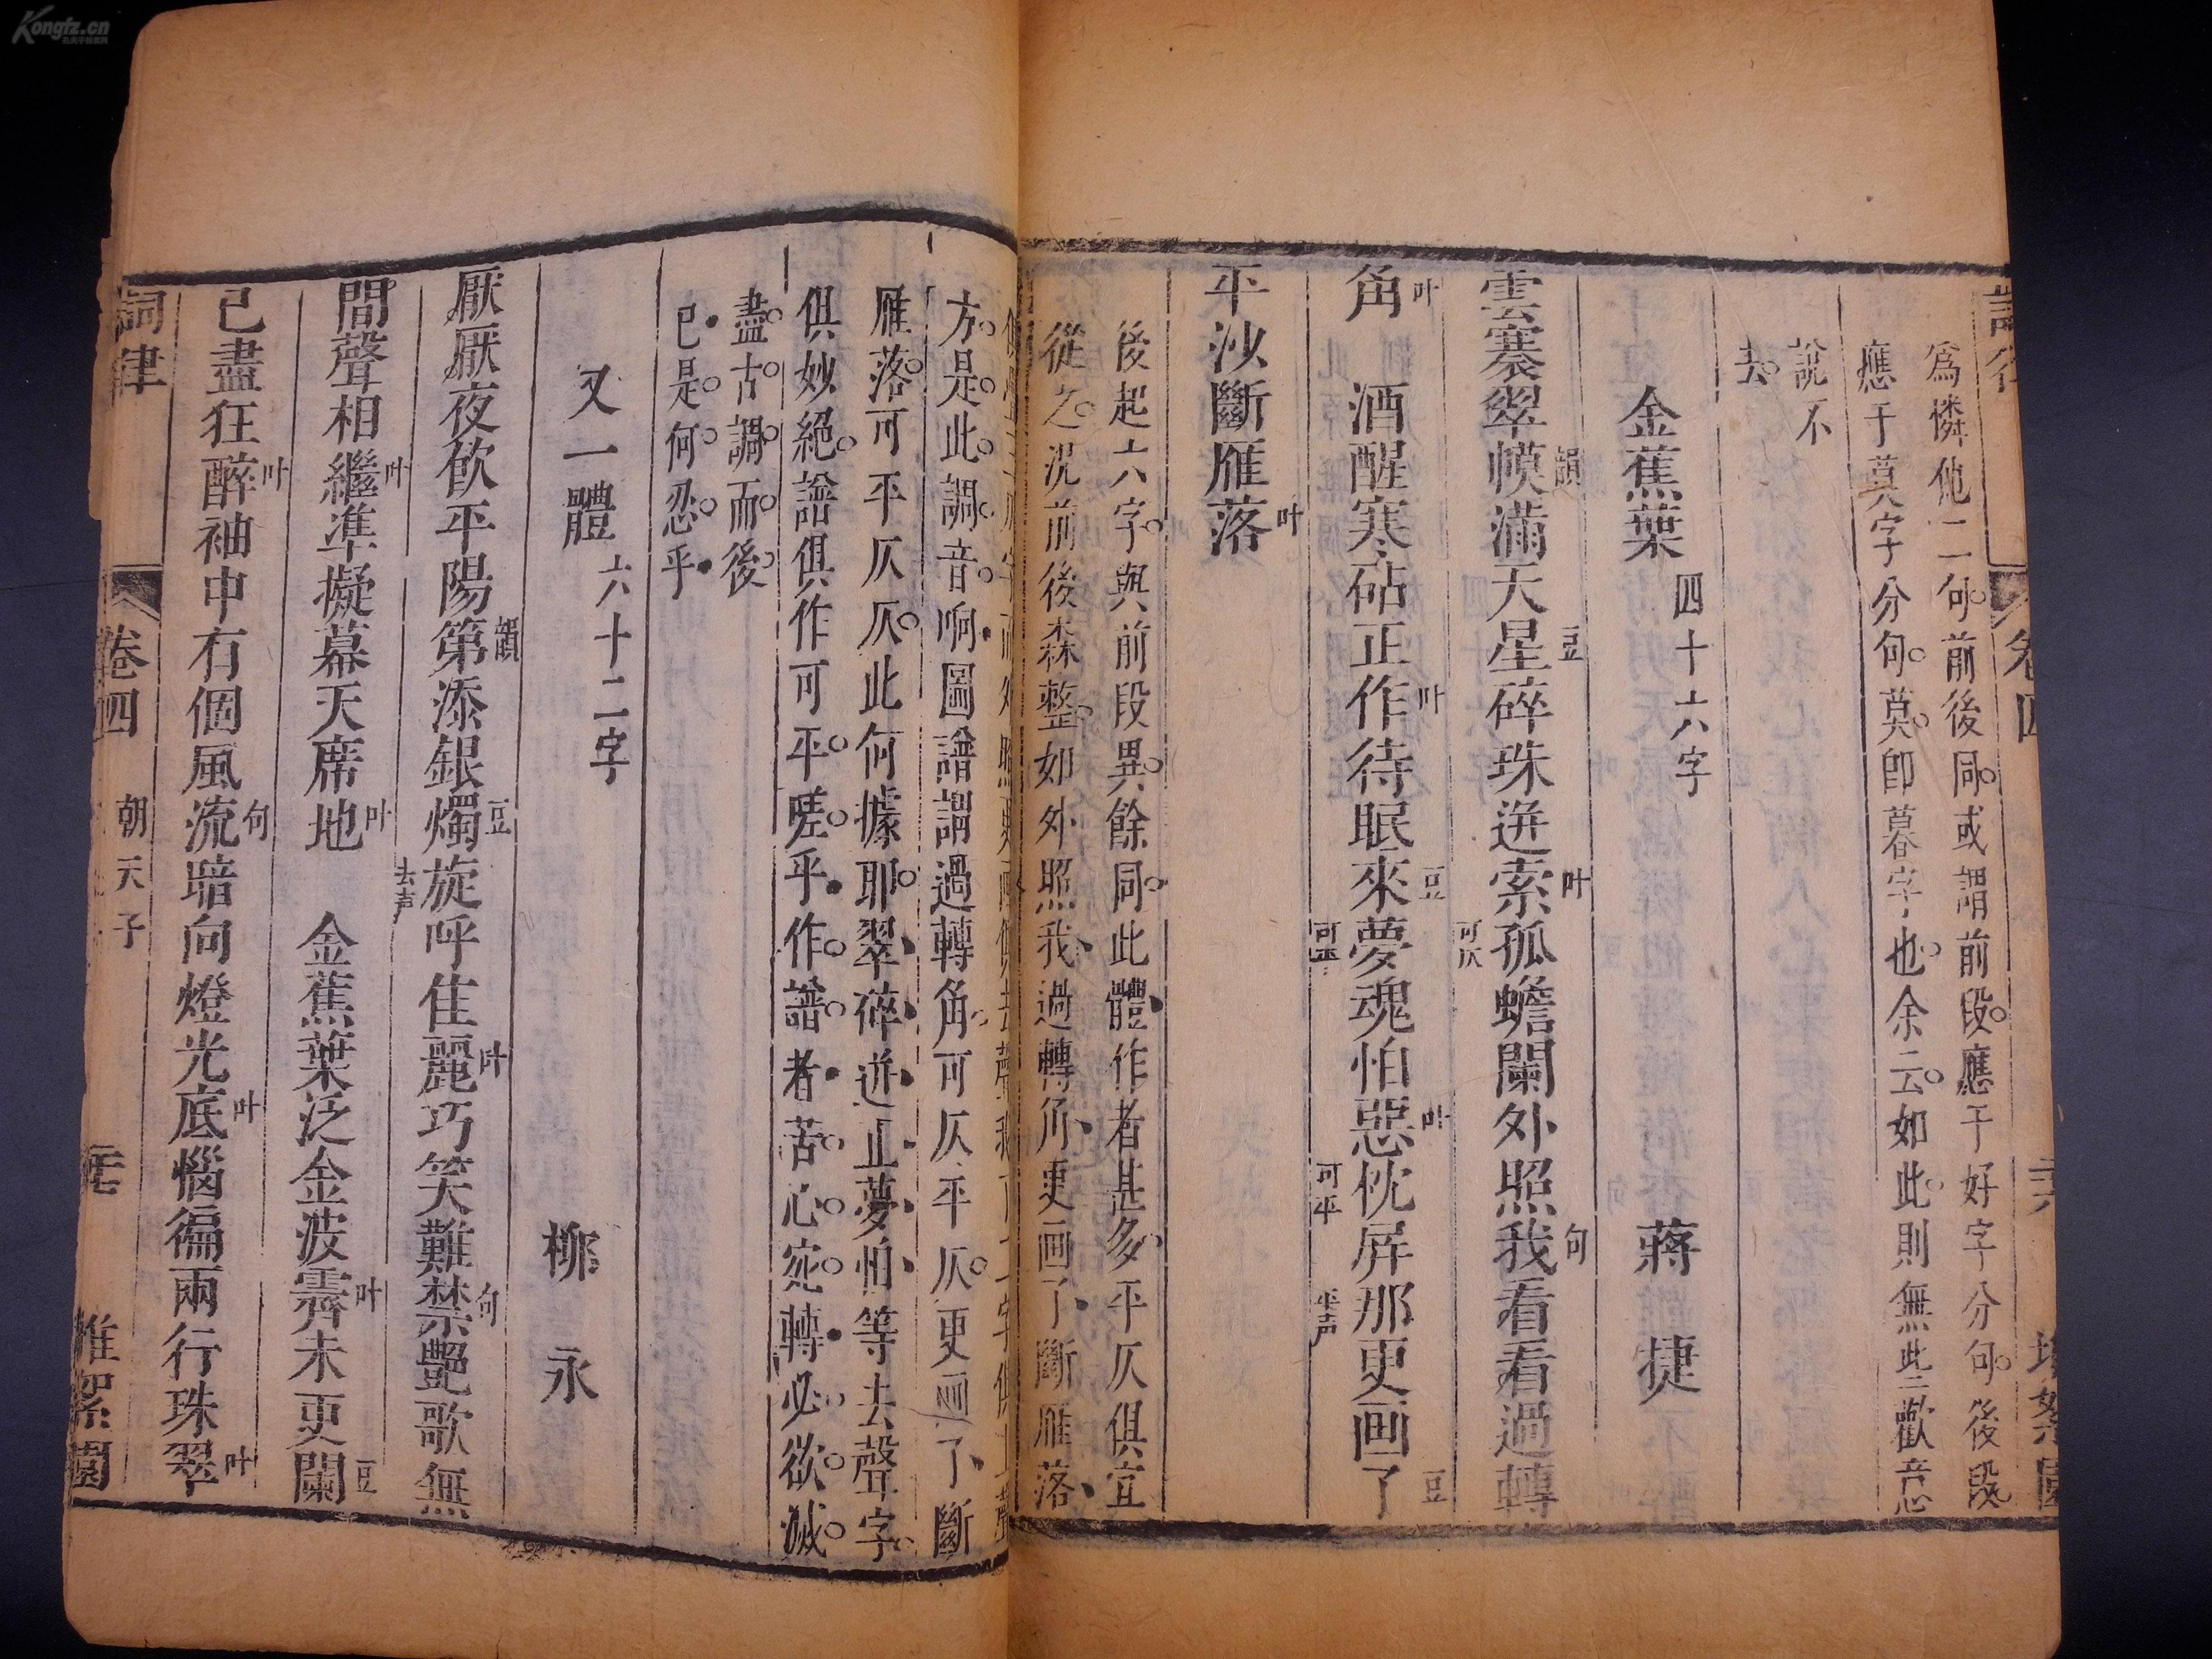 為憐他二句前後同或謂前段應于好字分句後段
應于莫字分句莫即暮字也余云如此則無此歡意
說不
去
金蕉葉 四十六字 蔣捷
雲褰翠幙韻滿天星豆碎珠迸索叶孤可仄蟾闌外照我句看看過轉
角叶 酒醒寒砧正作叶待眠來豆夢可平魂怕惡叶枕可平屏那平声更画了豆
平沙斷雁落叶
後起六字與前段異餘同此體作者甚多平仄俱宜
從之況前後森整如外照我過轉角更画了斷雁落
方是此調音响圖譜謂過轉角可仄平仄更画了斷
雁落可平仄仄此何據耶翠碎迸正夢怕等去聲字
俱妙絕譜俱作可平嗟乎作譜者苦心宛轉必欲滅
盡古調而後
已是何忍乎
又一體 六十二字 柳永
厭厭夜飲平陽第韻添銀燭豆旋去声呼佳麗叶巧笑難禁句艷歌無
間聲相繼叶準擬幕天席地叶 金蕉葉泛金波霽叶未更闌豆
已盡狂醉叶袖中有個風流句暗向燈光底叶惱徧兩行珠翠叶
詞律 卷四 朝天子 二十七 堆絮園
Kongfz.cn